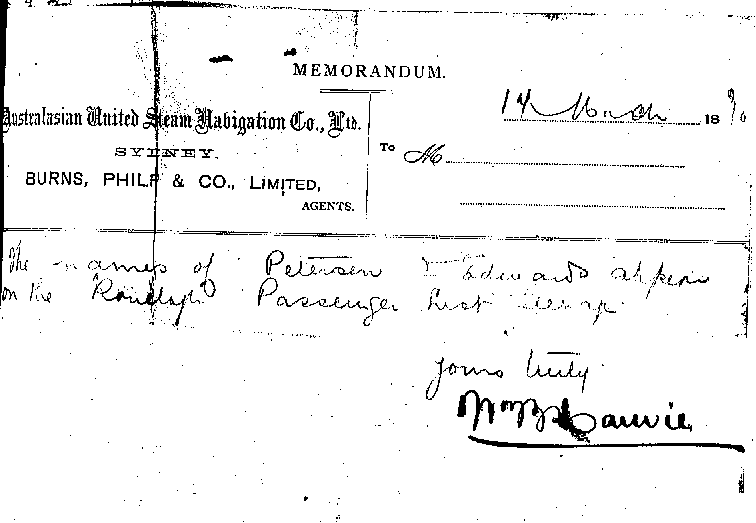 MEMORANDUM.
Australasian United Steam Navigation Co., Ltd.
SYDNEY.
BURNS, PHILP & CO., LIMITED,
AGENTS.
14 March 1890
To M
The names of Petersen & Edwards appear
on the Passenger List
Yours truly